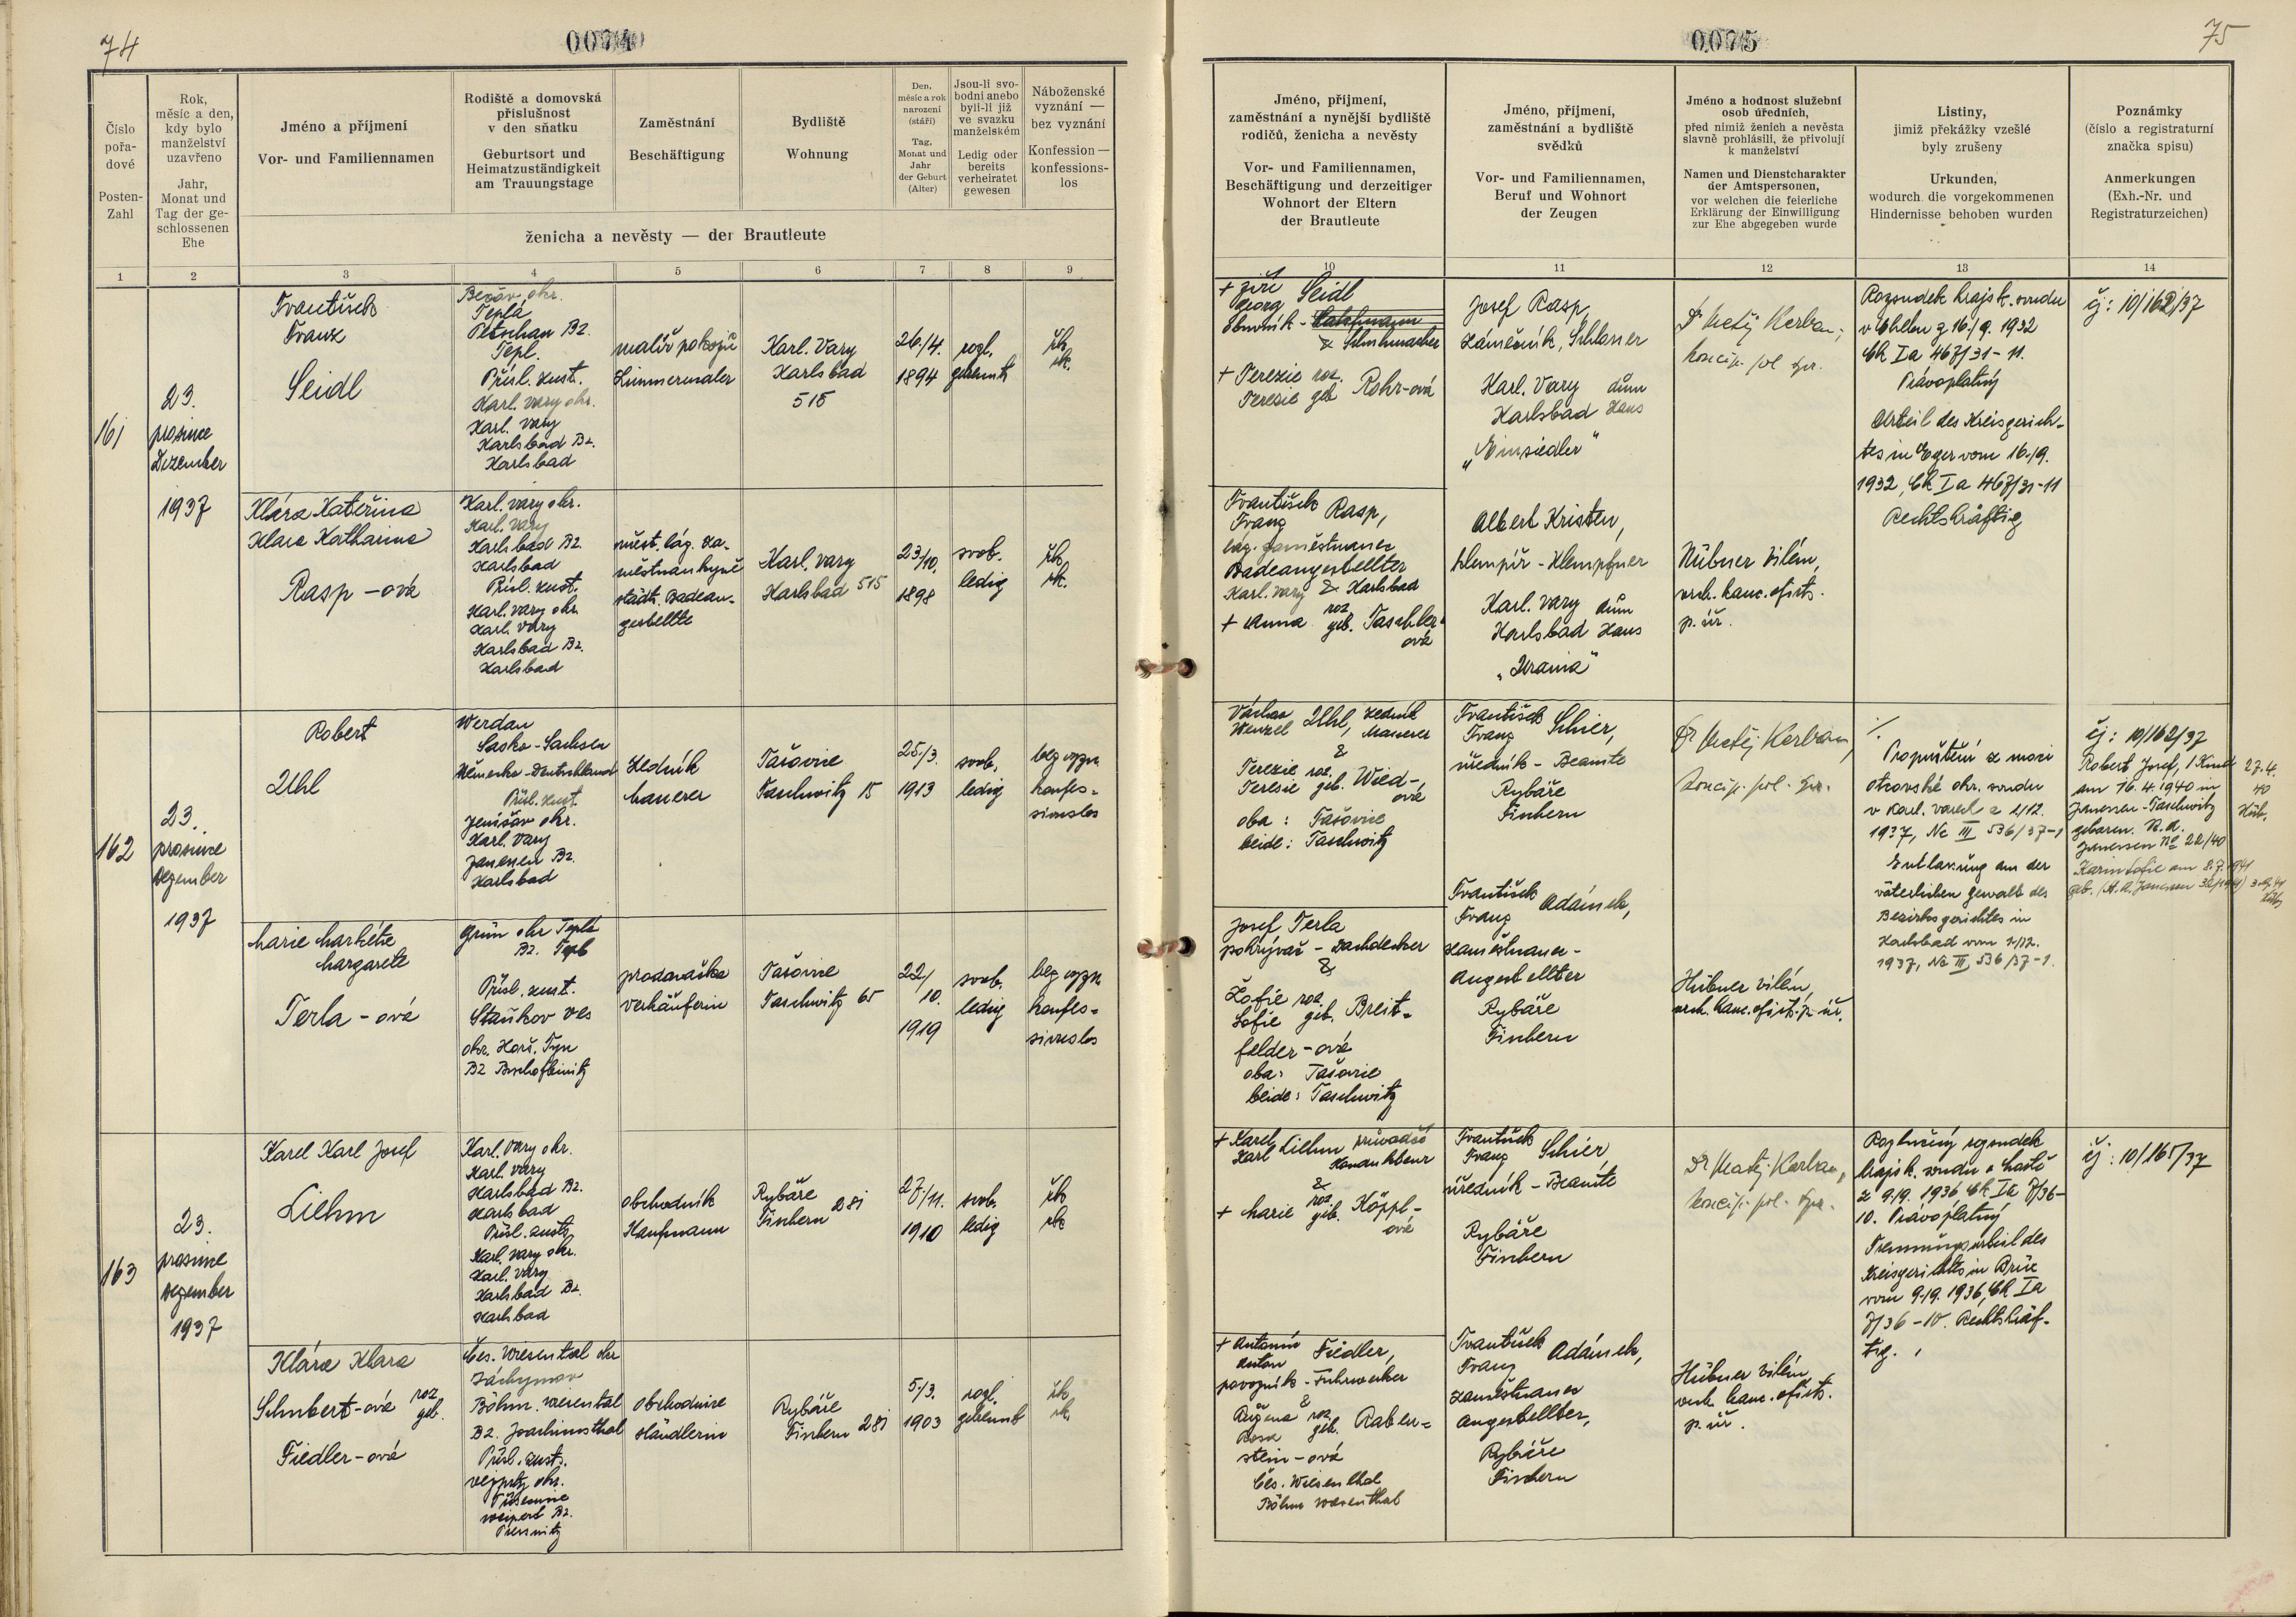 74
0074
Číslo
pořa-
dové
Posten-
Zahl
Rok,
měsíc a den,
kdy bylo
manželství
uzavřeno
Jahr,
Monat und
Tag der ge-
schlossenen
Ehe
Jméno a příjmení
Vor- und Familiennamen
Rodiště a domovská
příslušnost
v den sňatku
Geburtsort und
Heimatzuständigkeit
am Trauungstage
Zaměstnání
Beschäftigung
Bydliště
Wohnung
Den,
měsíc a rok
narození
(stáří)
Tag,
Monat und
Jahr
der Geburt
(Alter)
Jsou-li svo-
bodni anebo
byli-li již
ve svazku
manželském
Ledig oder
bereits
verheiratet
gewesen
Náboženské
vyznání —
bez vyznání
Konfession —
konfessions-
los
ženicha a nevěsty — der Brautleute
1
2
3
4
5
6
7
8
9
161
23.
prosince
Dezember
1937
František
Franz
Seidl
Bečov okr.
Teplá
Petschau Bz.
Tepl.
Přísl. zust.
Karl. Vary okr.
Karl. Vary
Karlsbad Bz.
Karlsbad
malíř pokojů
Zimmermaler
Karl. Vary
Karlsbad
515
26./4.
1894
rozl.
getrennt
řk
rk.
Klára Kateřina
Klara Katharina
Rasp-ová
Karl. Vary okr.
Karl. Vary
Karlsbad Bz.
Karlsbad
Přísl. zust.
Karl. Vary okr.
Karl. Vary
Karlsbad Bz.
Karlsbad
měst. láz. za-
městnankyně
städt. Badean-
gestellte
Karl. Vary
Karlsbad 515
23/10.
1898
svob.
ledig
řk
rk.
162
23.
prosince
Dezember
1937
Robert
Uhl
Werdau
Sasko-Sachsen
Německo-Deutschland
Přísl. zust.
Jenišov okr.
Karl. Vary
Janessen Bz.
Karlsbad
Zedník
Maurer
Tašovice
Taschwitz 15
25./3.
1913
svob.
ledig
bez vyzn.
konfes-
sionslos
Marie Markéta
Margarete
Terla-ová
Grün okr Teplá
Bz. Tepl
Přísl. zust.
Staňkov ves
okr. Horš. Týn
Bz Bischofteinitz
prodavačka
Verkäuferin
Tašovice
Taschwitz 65
22/
10.
1919
svob.
ledig
bez vyzn.
konfes-
sionslos
163
23.
prosince
Dezember
1937
Karel Karl Josef
Liehm
Karl. Vary okr.
Karl. Vary
Karlsbad Bz.
Karlsbad
Přísl. zust.
Karl. Vary okr.
Karl. Vary
Karlsbad Bz.
Karlsbad
obchodník
Kaufmann
Rybáře
Fischern 281
27/11.
1910
svob.
ledig
řk
rk
Klára Klara
Schubert-ová roz
geb.
Fiedler-ová
Čes. Wiesental okr
Jáchymov
Böhm. Wiesental
Bz. Joachimsthal
Přísl. zust.
Vejprty okr.
Přísečnice
Weipert Bz.
Pressnitz
obchodnice
Händlerin
Rybáře
Fischern 281
5./3.
1903
rozl.
getrennt
řk
rk.
75
0075
Jméno, příjmení,
zaměstnání a nynější bydliště
rodičů, ženicha a nevěsty
Vor- und Familiennamen,
Beschäftigung und derzeitiger
Wohnort der Eltern
der Brautleute
Jméno, příjmení,
zaměstnání a bydliště
svědků
Vor- und Familiennamen,
Beruf und Wohnort
der Zeugen
Jméno a hodnost služební
osob úředních,
před nimiž ženich a nevěsta
slavně prohlásili, že přivolují
k manželství
Namen und Dienstcharakter
der Amtspersonen,
vor welchen die feierliche
Erklärung der Einwilligung
zur Ehe abgegeben wurde
Listiny,
jimiž překážky vzešlé
byly zrušeny
Urkunden,
wodurch die vorgekommenen
Hindernisse behoben wurden
Poznámky
(číslo a registraturní
značka spisu)
Anmerkungen
(Exh.-Nr. und
Registraturzeichen)
10
11
12
13
14
+ Jiří
Georg Seidl
Obuvník -
& Schuhmacher
+ Terezie roz.
Teresie geb. Rohr-ová
Josef Rasp,
zámečník, Schlosser
Karl. Vary dům
Karlsbad Haus
„Einsiedler“
Dr Matěj Kerban,
koncip. pol. spr.
Rozsudek krajsk. soudu
v Chebu z 16./9. 1932
Ck Ia 467/31-11.
Právoplatný
Urteil des Kreisgerich-
tes in Eger vom 16./9.
1932, Ck Ia 467/31-11
Rechtskräftig
čj: 10/162/37
František
Franz Rasp,
láz. zaměstnanec
Badeangestellter
Karl. Vary & Karlsbad
+ Anna roz
geb. Taschler-
ová
Albert Kristen,
klempíř - Klempfner
Karl. Vary dům
Karlsbad Haus
„Urania“
Hübner Vilém,
vrch. kanc. ofict.
p. úř.
Václav
Wenzel Uhl, zedník
Maurer
&
Terezie roz.
Teresie geb. Wied-
ová
oba: Tašovice
beide: Taschwitz
František
Franz Schier,
úředník - Beamte
Rybáře
Fischern
Dr Matěj Kerban,
koncip. pol. spr.
Propuštění z moci
otcovské okr. soudu
v Karl. Varech z 2/12.
1937, Nc III 536/37-1
Entlassung aus der
väterlichen Gewalt des
Bezirksgerichtes in
Karlsbad vom 2/12.
1937, Nc III, 536/37-1.
čj: 10/162/37
Robert Josef, 1 Kind
am 16.4.1940 in
Janessen-Taschwitz
geboren.
Janessen No 22/40
27.4.
40
Hüb.
am 8.7.1941
Josef Terla
pokrývač - Dachdecker
&
Žofie roz.
Sofie geb. Breit-
felder-ová
oba: Tašovice
beide: Taschwitz
František
Franz Adámek,
zaměstnanec-
Angestellter
Rybáře
Fischern
Hübner Vilém,
vrch. kanc. ofict. p. úř.
+ Karel
Karl Liehm
&
+ Marie roz
geb. Köppl-
ová
František
Franz Schier,
úředník - Beamte
Rybáře
Fischern
Dr Matěj Kerban,
koncip. pol. spr.
Rozlučný rozsudek
krajsk. soudu v Mostě
z 9./9. 1936, Ck Ia 7/36-
10. Právoplatný
Trennungsurteil des
Kreisgerichtes in Brüx
vom 9./9. 1936, Ck Ia
7/36-10. Rechtskräf-
tig.
čj: 10/165/37
+ Antonín
Anton Fiedler,
povozník - Fuhrwerker
&
Růžena roz.
Rosa geb. Raben-
stein-ová
Čes. Wiesenthal
Böhm Wiesenthal
František
Franz Adámek,
zaměstnanec
Angestellter,
Rybáře
Fischern
Hübner Vilém
vrch. kanc. ofict.
p. úř.